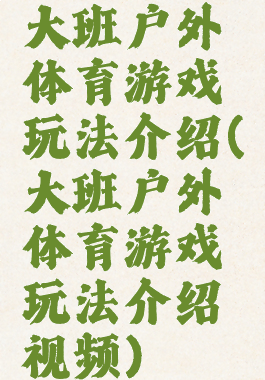 大班户外
体育游戏
玩法介绍(
大班户外
体育游戏
玩法介绍
视频)